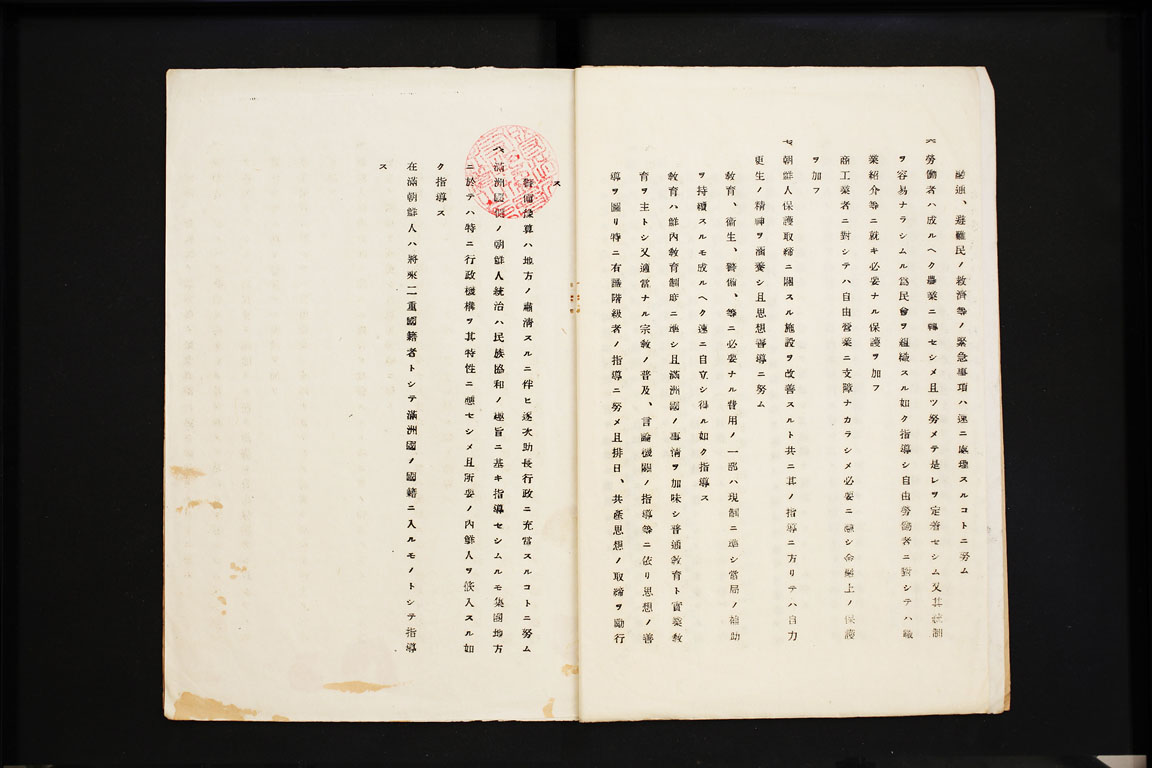 融通、避難民ノ救濟等ノ緊急事項ハ速ニ處理スルコトニ努ム
六 勞働者ハ成ルヘク農業ニ轉セシメ且ツ努メテ是レヲ定着セシム又其統制
ヲ容易ナラシムル爲民會ヲ組織スル如ク指導シ自由勞働者ニ對シテハ職
業紹介等ニ就キ必要ナル保護ヲ加フ
商工業者ニ對シテハ自由營業ニ支障ナカラシメ必要ニ應シ金融上ノ保護
ヲ加フ
七 朝鮮人保護取締ニ關スル施設ヲ改善スルト共ニ其ノ指導ニ方リテハ自力
更生ノ精神ヲ涵養シ且思想善導ニ努ム
教育、衞生、警備、等ニ必要ナル費用ノ一部ハ現制ニ準シ當局ノ補助
ヲ持續スルモ成ルヘク速ニ自立シ得ル如ク指導ス
教育ハ鮮內教育制度ニ準シ且滿洲國ノ事情ヲ加味シ普通教育ト實業教
育ヲ主トシ又適當ナル宗教ノ普及、言論機關ノ指導等ニ依リ思想ノ善
導ヲ圖リ特ニ有識階級者ノ指導ニ努メ且排日、共產思想ノ取締ヲ勵行
ス
警備ハ地方ノ肅清スルニ伴ヒ逐次助長行政ニ充當スルコトニ努ム
八 滿洲國側ノ朝鮮人統治ハ民族協和ノ趣旨ニ基キ指導セシムルモ集團地方
ニ於テハ特ニ行政機構ヲ其特性ニ應セシメ且所要ノ內鮮人ヲ侬入スル如
ク指導ス
在滿朝鮮人ハ將來二重國籍者トシテ滿洲國ノ國籍ニ入ルモノトシテ指導
ス